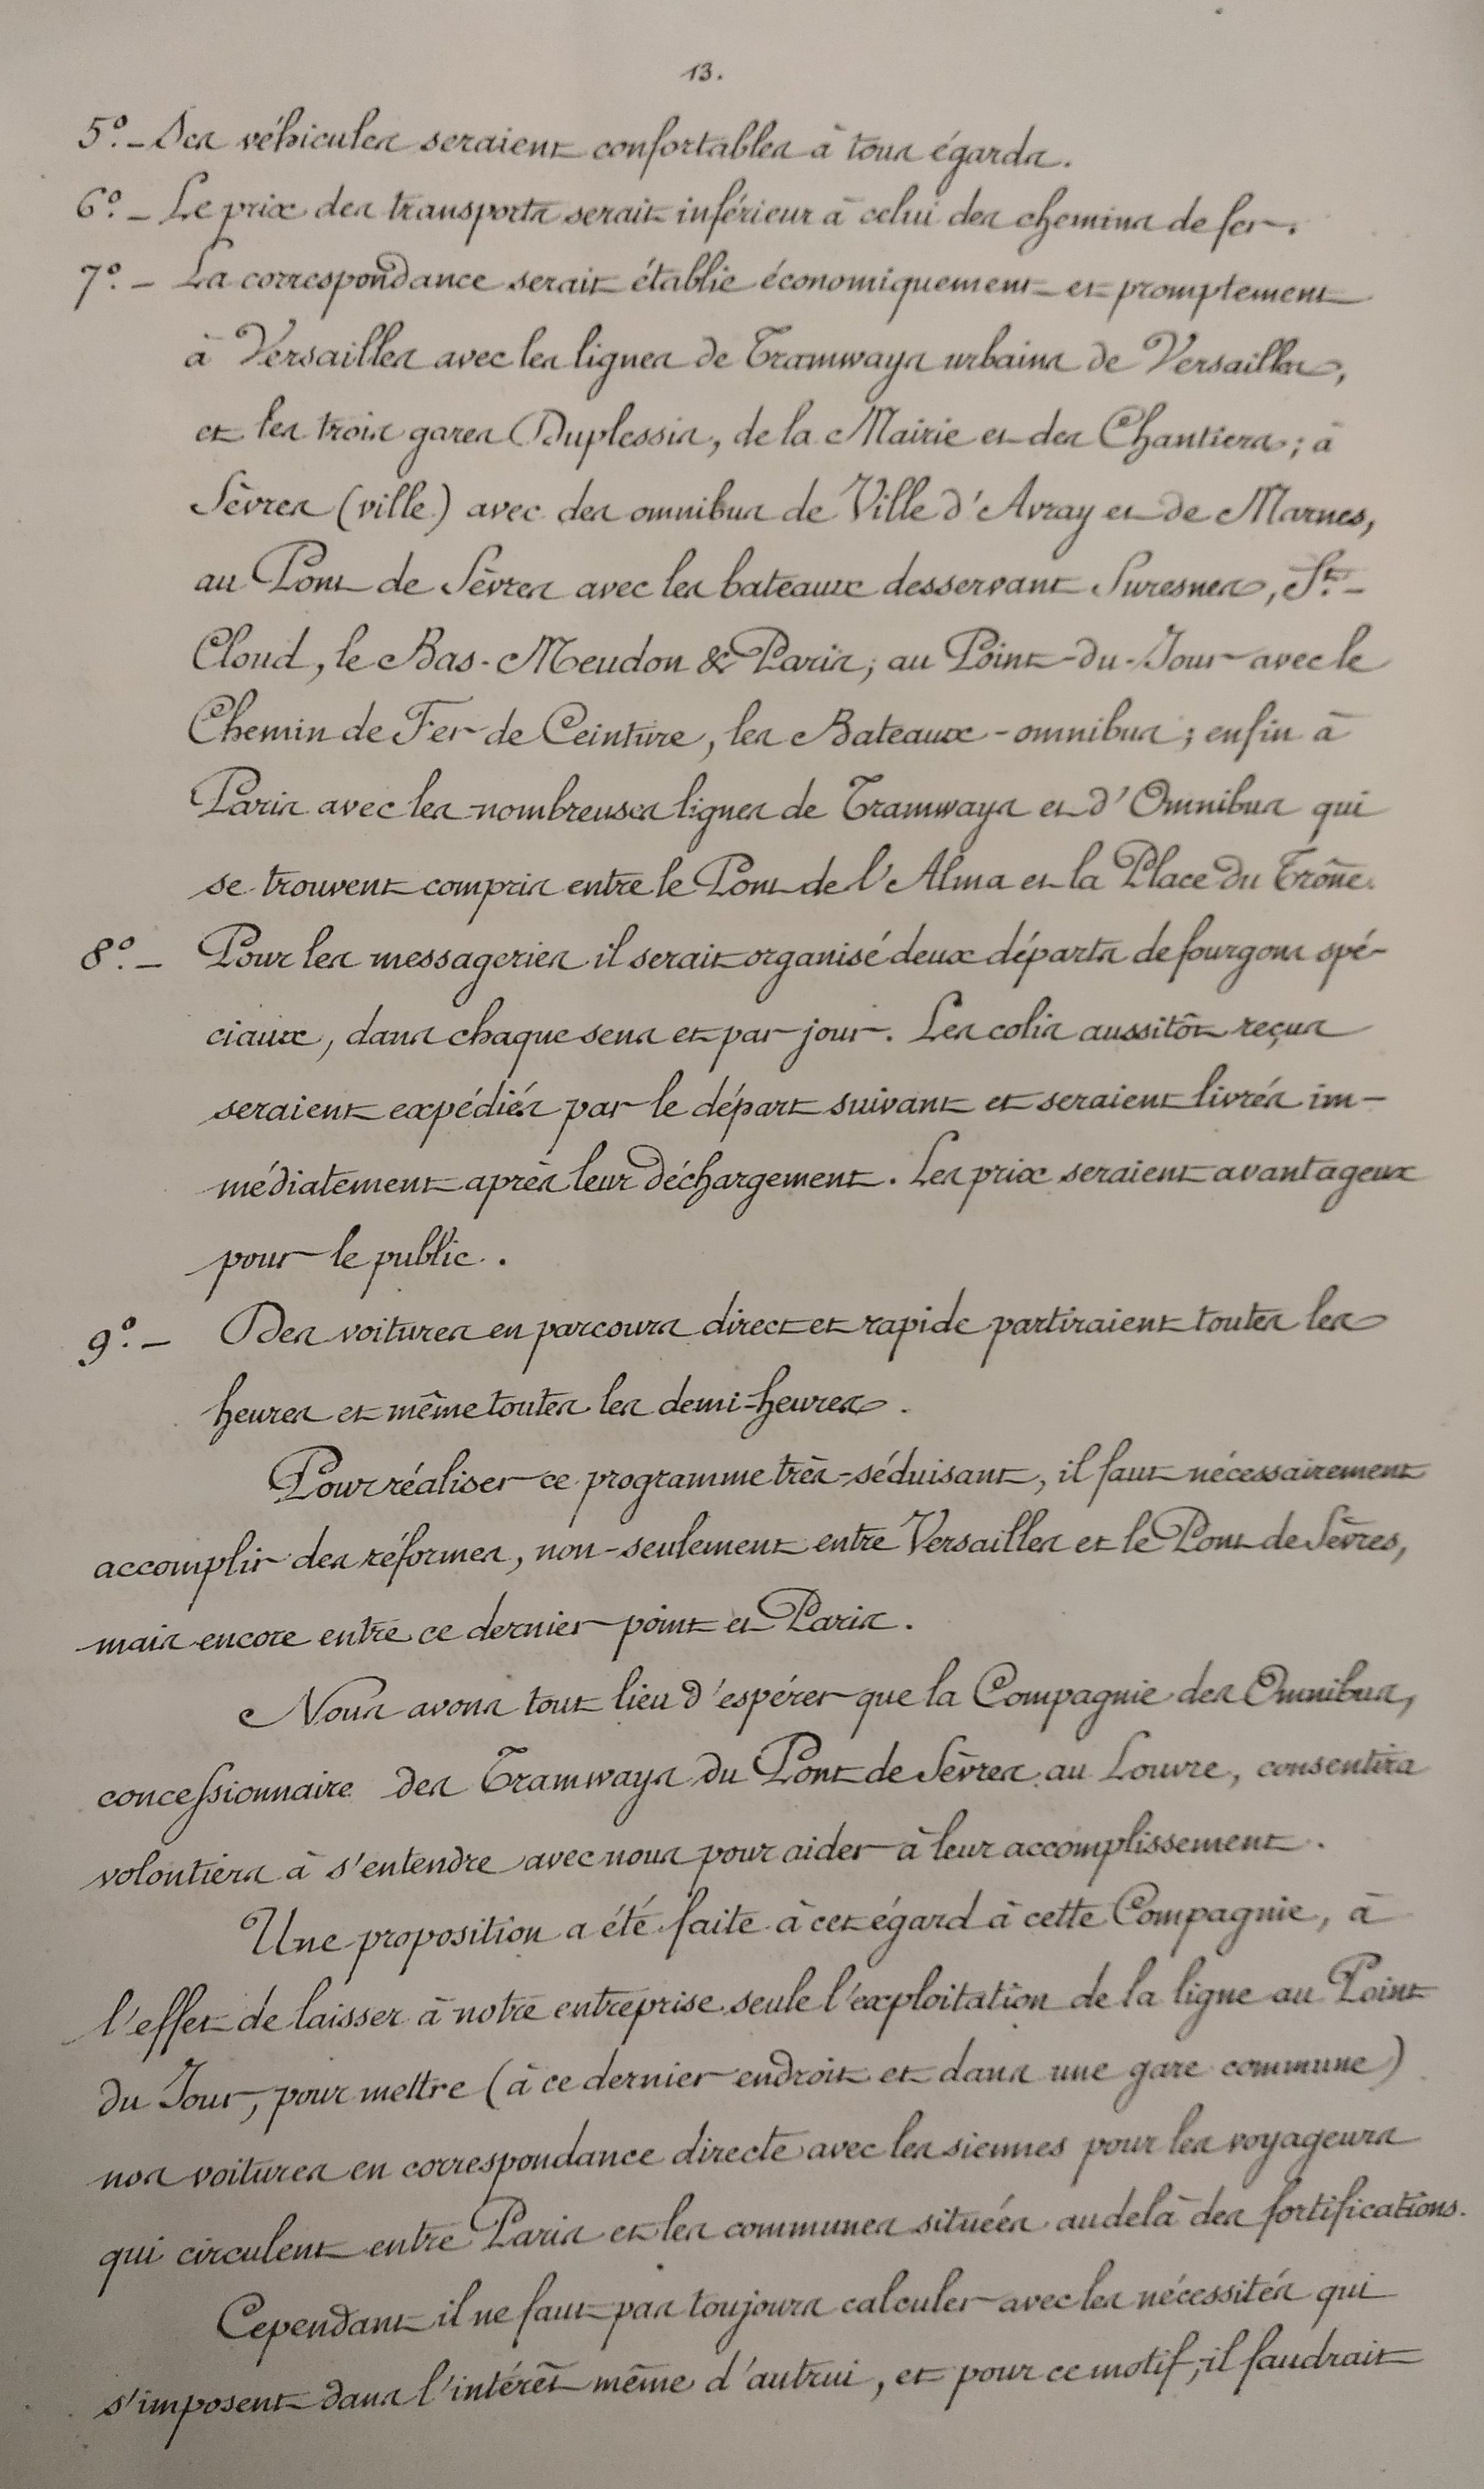 13.
5º._ Des véhicules seraient confortables à tous égards.
6º._ Le prix des transports serait inférieur à celui des chemins de fer.
7º._ La correspondance serait établie économiquement et promptement
à Versailles avec les lignes de Tramways urbains de Versailles,
et les trois gares Duplessis, de la Mairie et des Chantiers; à
Sèvres (ville) avec des omnibus de Ville d'Avray et de Marnes,
au Pont de Sèvres avec les bateaux desservant Suresnes, St.-
Cloud, le Bas-Meudon & Paris; au Point-du-Jour avec le
Chemin de Fer de Ceinture, les Bateaux-omnibus; enfin à
Paris avec les nombreuses lignes de Tramways et d'Omnibus qui
se trouvent compris entre le Pont de l'Alma et la Place du Trône.
8º._ Pour les messageries il serait organisé deux départs de fourgons spé-
ciaux, dans chaque sens et par jour. Les colis aussitôt reçus
seraient expédiés par le départ suivant et seraient livrés im-
médiatement après leur déchargement. Les prix seraient avantageux
pour le public.
9º._ Des voitures en parcours direct et rapide partiraient toutes les
heures et même toutes les demi-heures.
Pour réaliser ce programme très-séduisant, il faut nécessairement
accomplir des réformes, non-seulement entre Versailles et le Pont de Sèvres,
mais encore entre ce dernier point et Paris.
Nous avons tout lieu d'espérer que la Compagnie des Omnibus,
concessionnaire des Tramways du Pont de Sèvres au Louvre, consentira
volontiers à s'entendre avec nous pour aider à leur accomplissement.
Une proposition a été faite à cet égard à cette Compagnie, à
l'effet de laisser à notre entreprise seule l'exploitation de la ligne au Point
du Jour, pour mettre (à ce dernier endroit et dans une gare commune)
nos voitures en correspondance directe avec les siennes pour les voyageurs
qui circulent entre Paris et les communes situées au delà des fortifications.
Cependant il ne faut pas toujours calculer avec les nécessités qui
s'imposent dans l'intérêt même d'autrui, et pour ce motif, il faudrait